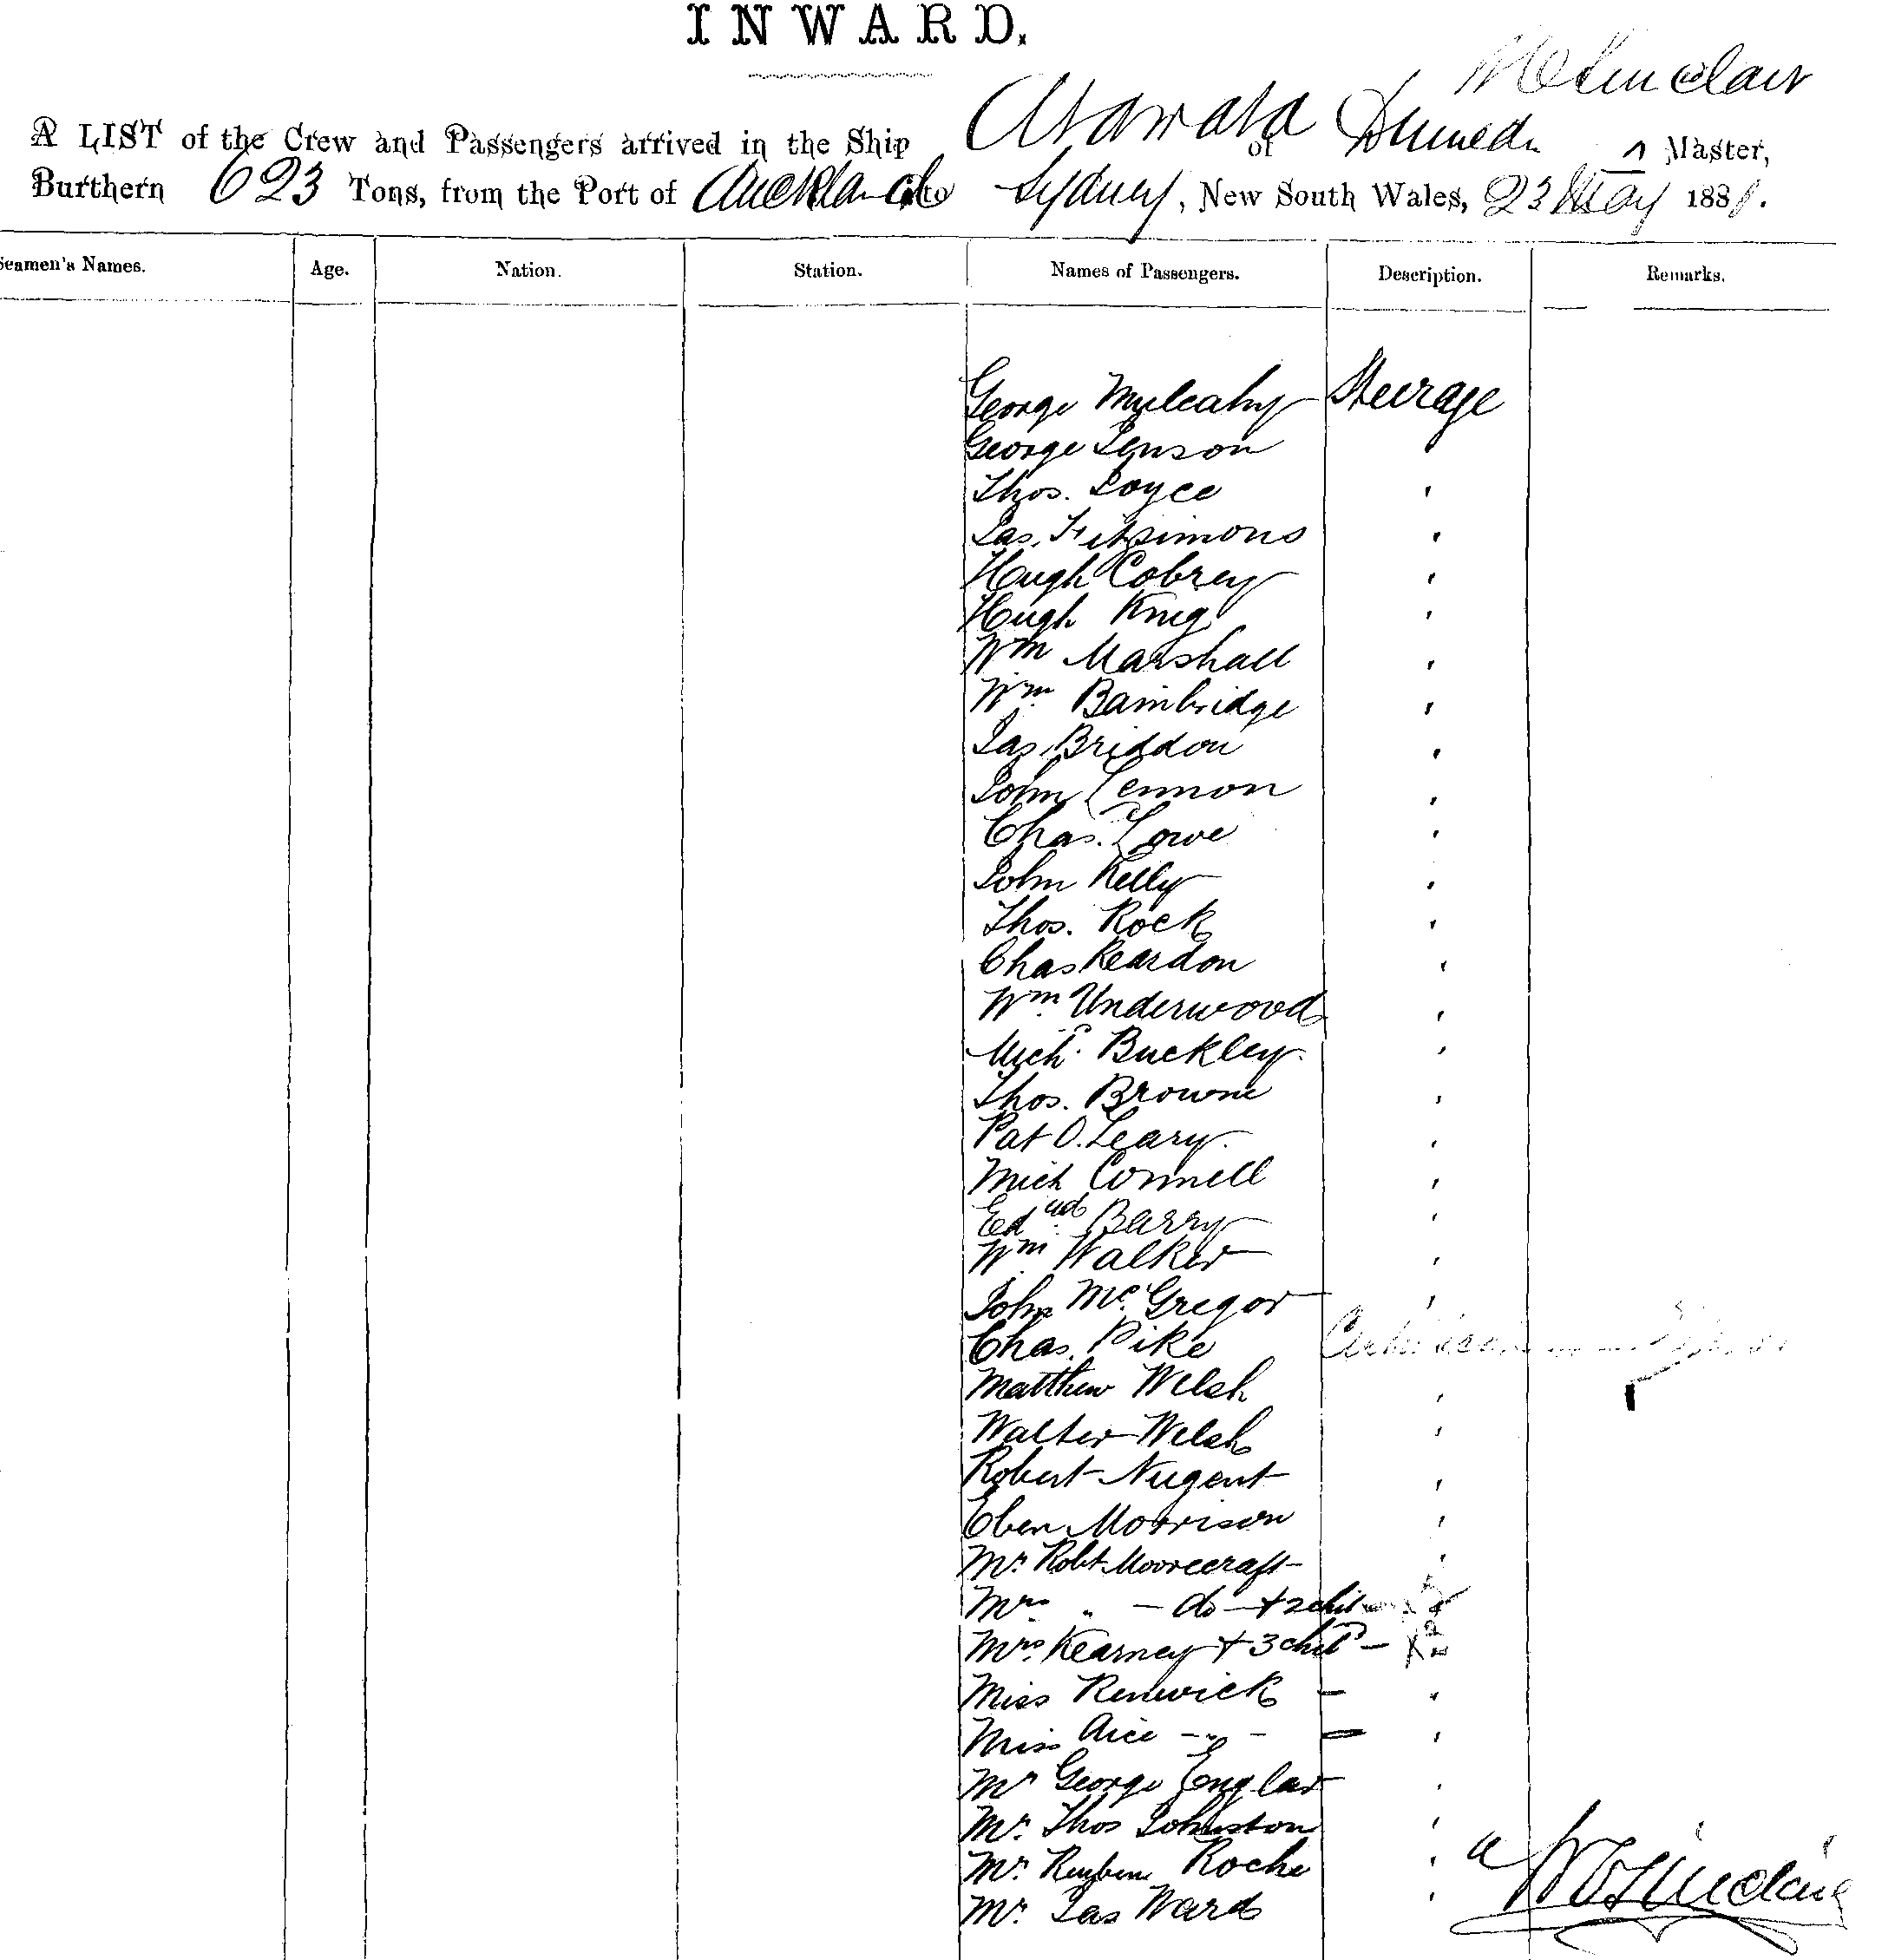 INWARD.
Sinclair
A LIST of the Crew and Passengers arrived in the Ship Arawata of Dunedin Master,
Burthern 623 Tons, from the Port of Auckland to Sydney, New South Wales, 23 May 1881.
Seamen's Names. Age. Nation. Station. Names of Passengers. Description. Remarks.
George Mulcahy Steerage
George Jenson "
Thos. Joyce "
Jas. Fitzsimons "
Hugh Cobrey "
Hugh King "
Wm Marshall "
Wm. Bambridge "
Jas. Briddon "
John Lennon "
Chas. Lowe "
John Kelly "
Thos. Rock "
Chas Reardon "
Wm. Underwood "
Michl. Buckley "
Thos. Browne "
Pat O.Leary. "
Mich Connell "
Edwd. Barry "
Wm Walker "
John Mc.Gregor "
Chas. Pike
Matthew Welsh "
Walter Welsh "
Robert Nugent "
Eben Morrison "
Mr. Robt Moorecraft "
Mrs. " - do - + 2 chil
Mrs. Kearney + 3 chil -
Miss Renwick - "
Miss Aice - " - "
Mr George "
Mr. Thos Johnston "
Mr. Reuben Roche "
Mr. Jas Ward "